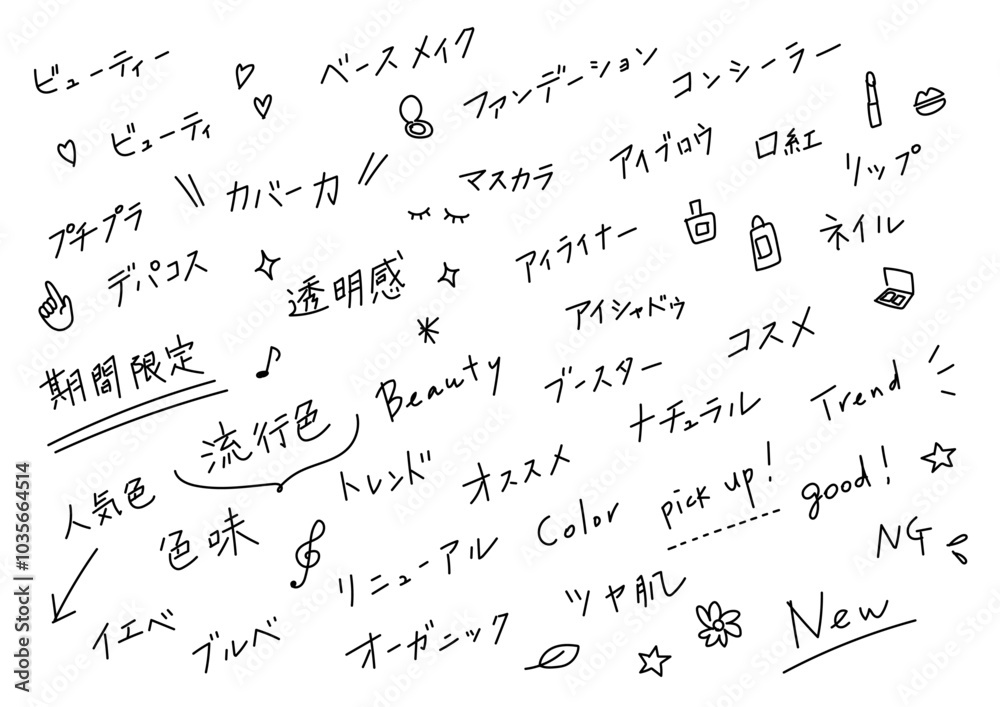 ビューティー
ベースメイク
ファンデーション
コンシーラー
ビューティ
カバー力
マスカラ
アイブロウ
口紅
リップ
プチプラ
デパコス
透明感
アイライナー
ネイル
アイシャドゥ
コスメ
期間限定
流行色
Beauty
ブースター
ナチュラル
Trend
人気色
色味
トレンド
オススメ
Color
pick up!
good!
NG
リニューアル
ツヤ肌
New
イエベ
ブルベ
オーガニック
Adobe Stock | #1035664514